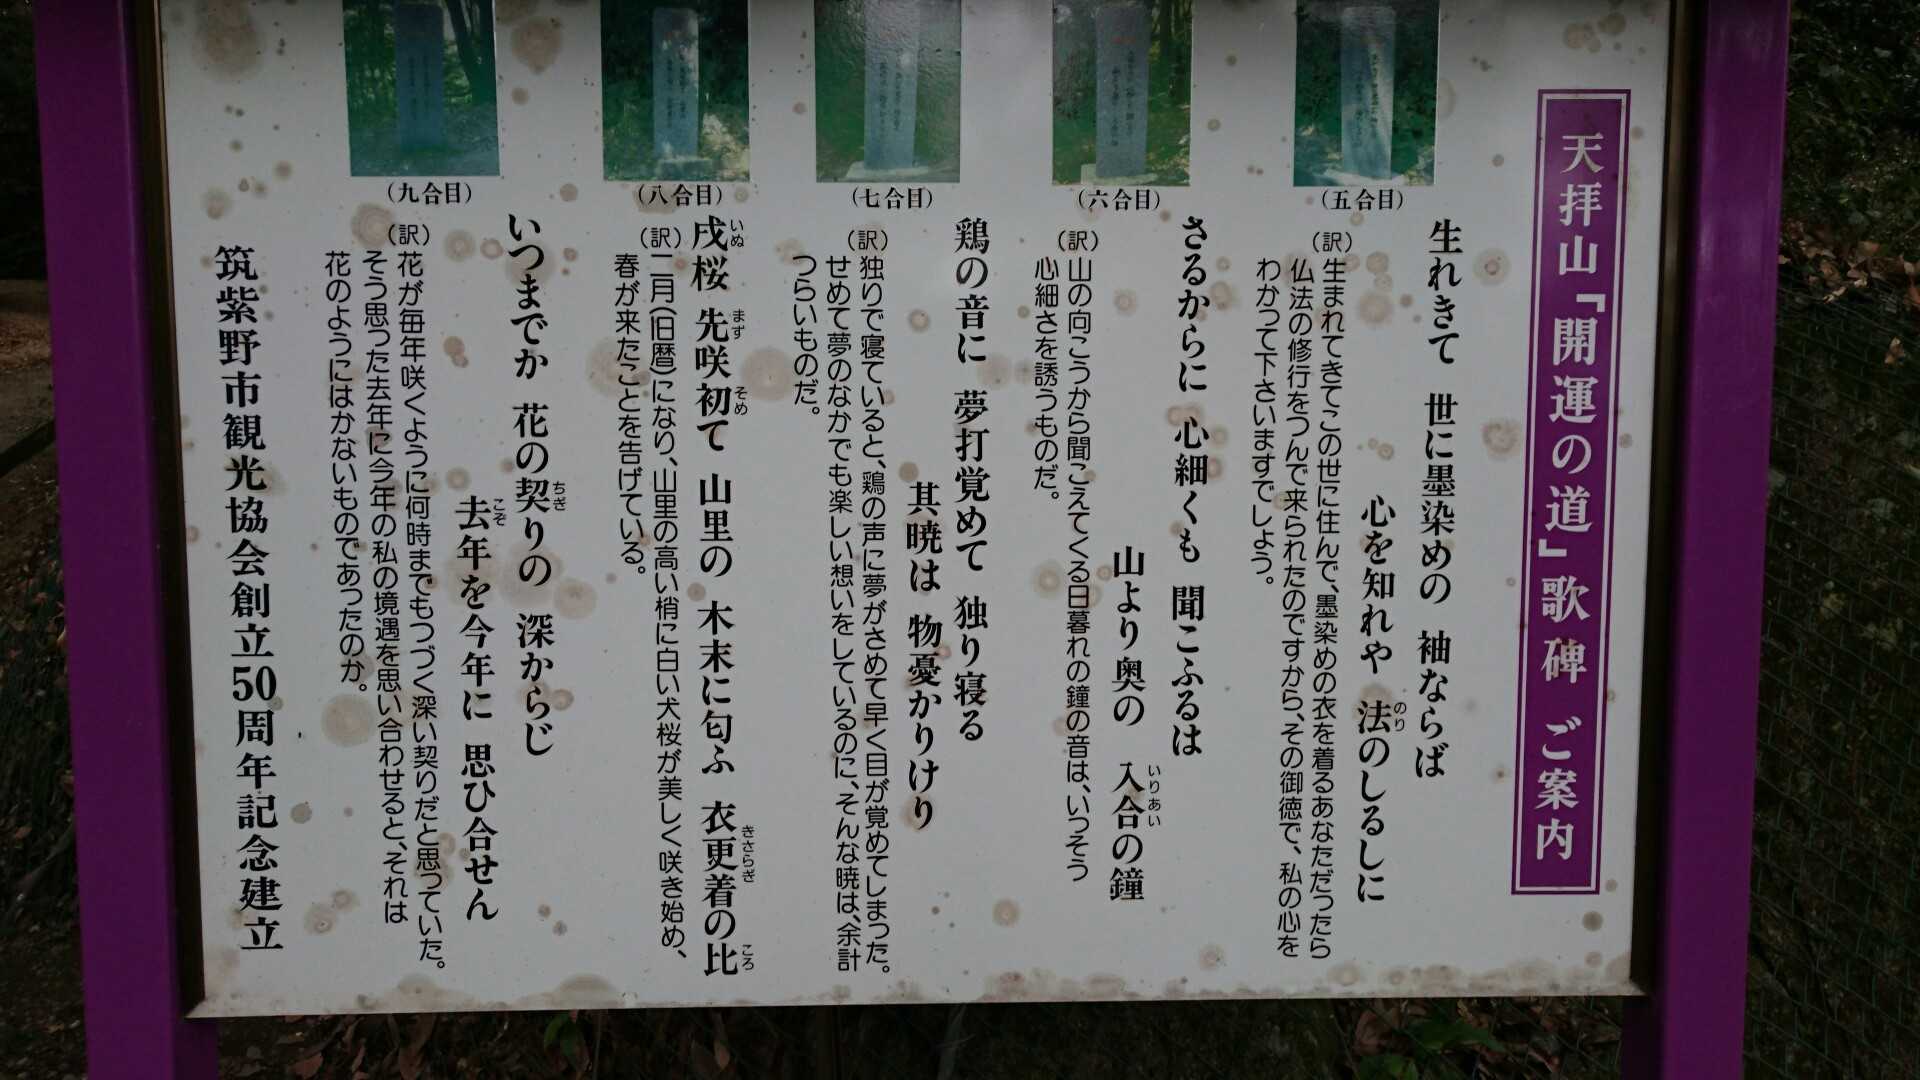 天拝山『開運の道』歌碑 ご案内
(五合目)
生れきて 世に墨染めの 袖ならば
心を知れや 法のしるしに
のり
(訳)
生まれてきてこの世に住んで、墨染めの衣を着るあなただったら
仏法の修行をつんで来られたのですから、その御徳で、私の心を
わかって下さいますでしょう。
(六合目)
さるからに 心細くも 聞こふるは
山より奥の 入合の鐘
いりあい
(訳)
山の向こうから聞こえてくる日暮れの鐘の音は、いっそう
心細さを誘うものだ。
(七合目)
鶏の音に 夢打覚めて 独り寝る
其暁は 物憂かりけり
(訳)
独りで寝ていると、鶏の声に夢がさめて早く目が覚めてしまった。
せめて夢のなかでも楽しい想いをしているのに、そんな暁は、余計
つらいものだ。
(八合目)
戌桜 先咲初て 山里の 木末に匂ふ 衣更着の比
いぬ まず そめ きさらぎ ころ
(訳)
二月(旧暦)になり、山里の高い梢に白い犬桜が美しく咲き始め、
春が来たことを告げている。
(九合目)
いつまでか 花の契りの 深からじ
ちぎ
去年を今年に 思ひ合せん
こぞ
(訳)
花が毎年咲くように何時までもつづく深い契りだと思っていた。
そう思った去年に今年の私の境遇を思い合わせると、それは
花のようにはかないものであったのか。
筑紫野市観光協会創立50周年記念建立